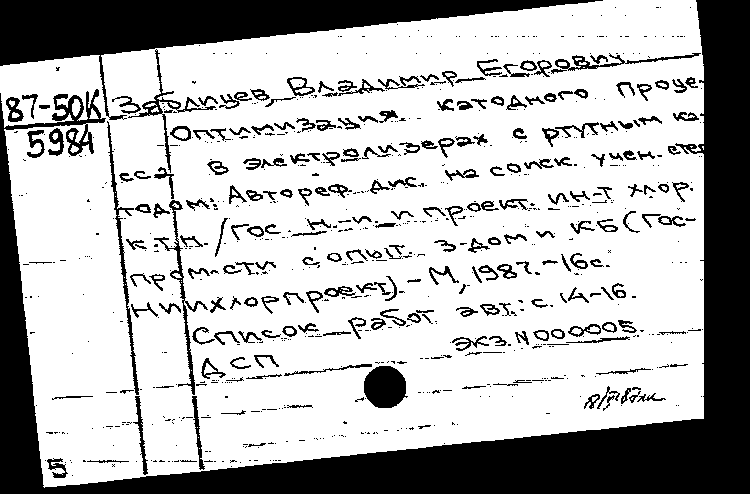 87-50К Заблицев, Владимир Егорович
5984 Оптимизация катодного проце-
сса в электролизерах с ртутным ка-
тодом: Автореф дис. на соиск. учен. степ
к.т.н. / Гос. н.-и. и проект. ин-т хлор.
пром-сти с опыт. з-дом и КБ (Гос-
НИИхлорпроект). - М, 1987. - 16с.
Список работ авт.: с. 14-16.
ДСП экз. N 000005.
5